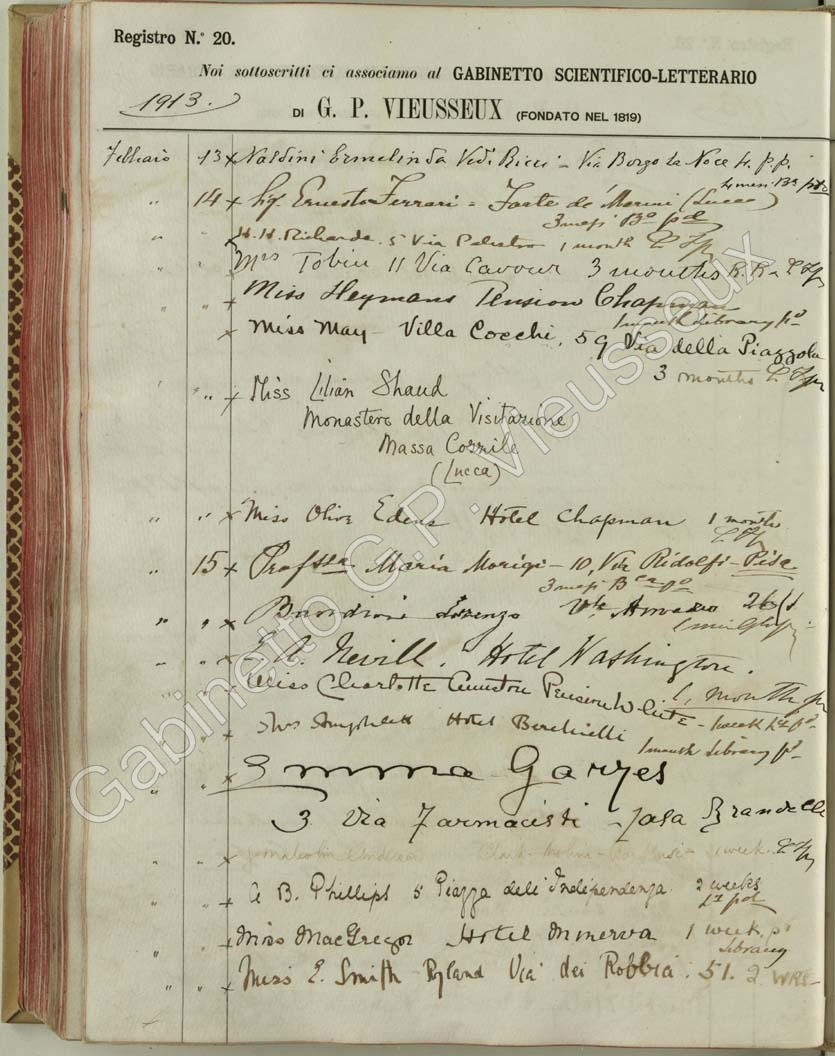 Registro N.º 20.
Noi sottoscritti ci associamo al GABINETTO SCIENTIFICO-LETTERARIO
1913.
DI G. P. VIEUSSEUX (FONDATO NEL 1819)
Febbraio 13 x Naldini Ermelinda Ved. Ricci - Via Borgo la Noce 4. p.p.
" 14 x Sig. Ernesto Ferrari = Forte de' Marmi (Lucca)
" " H. H. Richards. 5 Via Palestro 1 month
" " Mrs Tobin 11 Via Cavour 3 months
" " x Miss Heymans Pension Chapman
1 month Library
x Miss May - Villa Cocchi, 59 Via della Piazzola
3 months
" " x Miss Lilian Shaud
Monastero della Visitazione
Massa Cozzile
(Lucca)
" " x Miss Olive Edens Hotel Chapman 1 month
" 15 x Prof.ssa Maria Morigi - 10, Via Ridolfi - Pisa
" " x Lorenzo 26
" " x E. A. Nevill. Hotel Washington.
1, month
" " Miss Charlotte Pension White - 1 week
" " x Hotel Berchielli
1 month Library
" " x Emma Garzes
3 Via Farmacisti - Casa
" " x week
" " x A B. Phillips 5 Piazza dell' Indipendenza 2 weeks
" " x Miss MacGregor Hotel Minerva 1 week
Library
" " x Miss E. Smith Ryland Via dei Robbia. 51. 2 WKS
Gabinetto G.P. Vieusseux